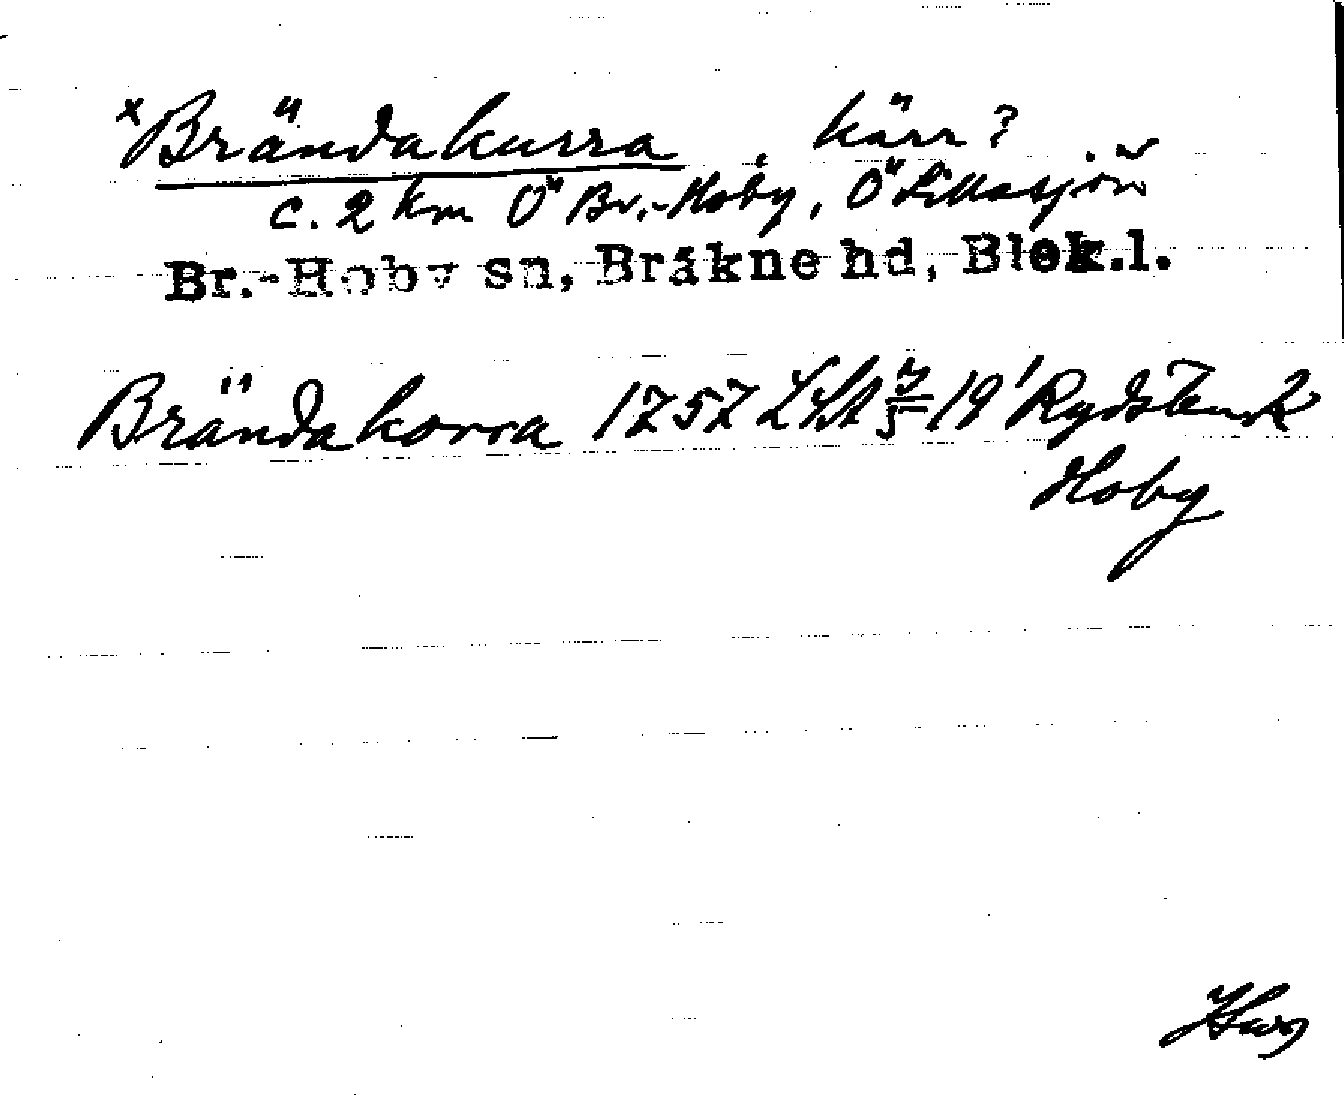 ×Brändakurra, kärr?
c. 2 km Ö Br.-Hoby, Ö Lillasjön
Br.-Hoby sn, Bräkne hd, Blek.l.
Brändakorra 1757 LSA 19
Hoby